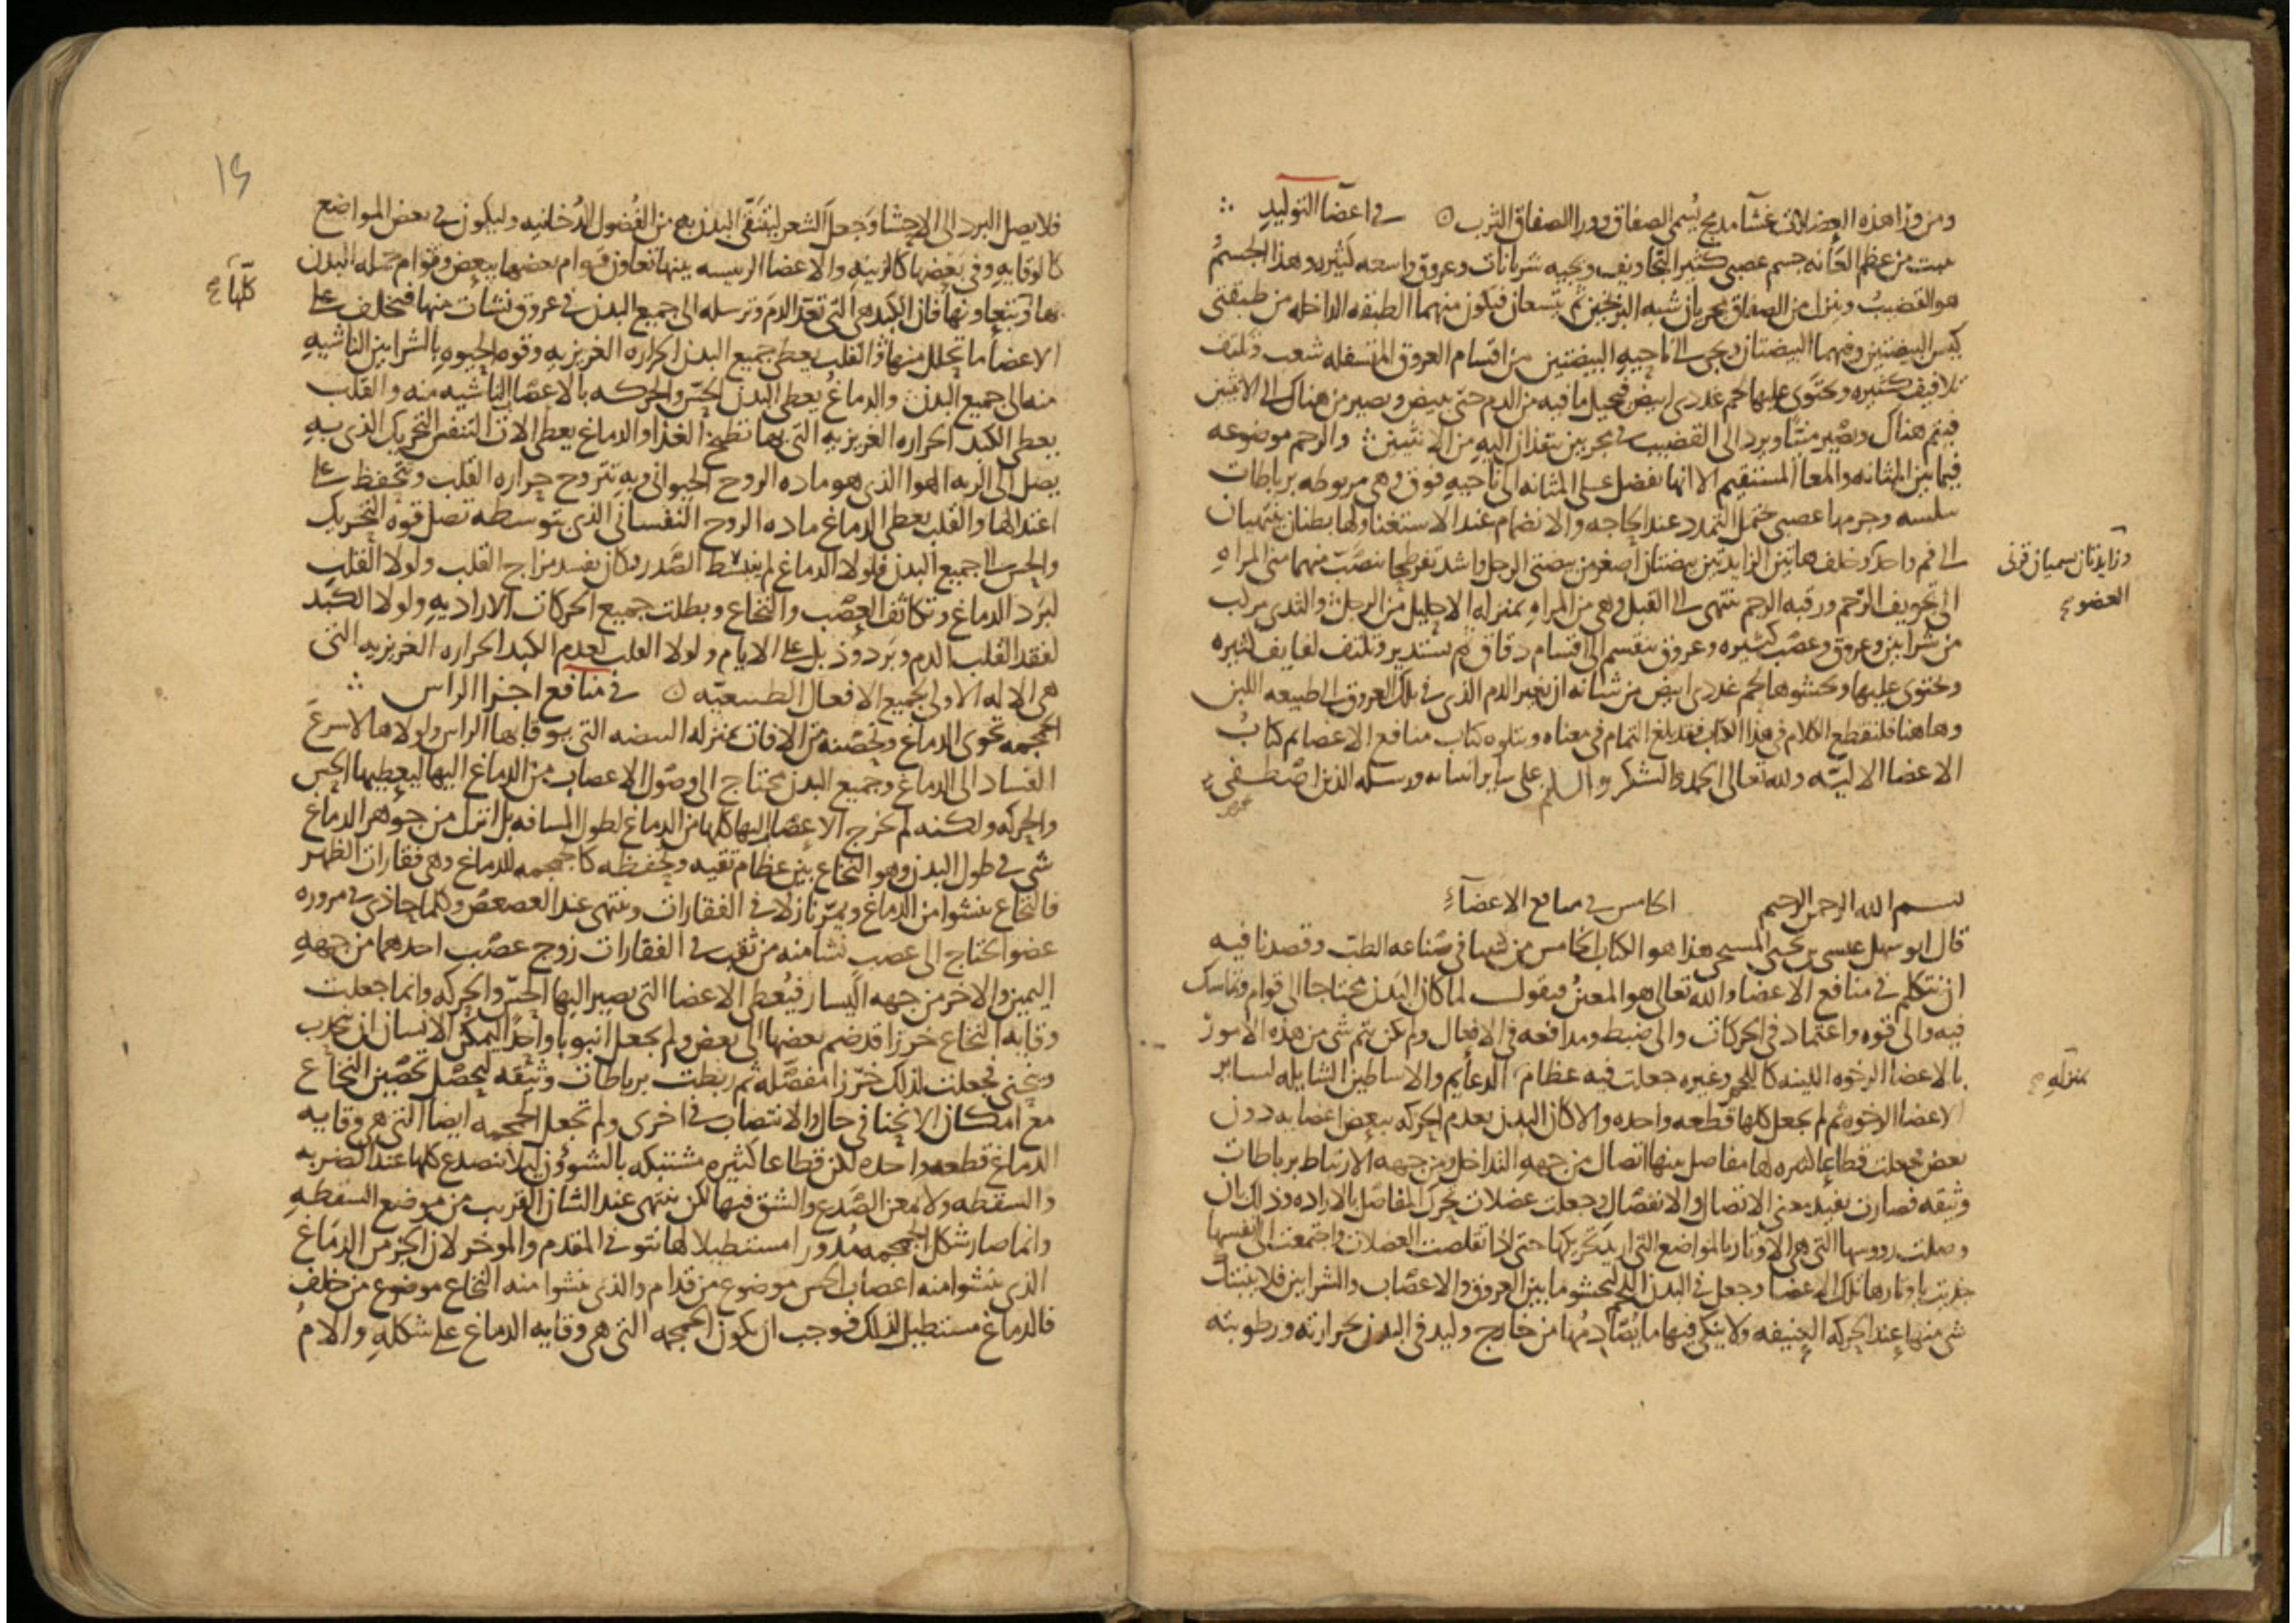 ومن ورا هذه العضلات غشا مدمج يسمى الصفاق وورا الصفاق الثرب في اعضا التوليد
ينبت من عظم العانه جسم عصبي كثير التجاويف ويجيه شريانات وعروق واسعه كثيره وهذا الجسم
هو القضيب وينزل من الصفاق مجريان شبه البربخين ثم يتسعان فيكون منهما الطبقه الداخله من طبقتي
كيس البيضتين وفيهما البيضتان ويجي الى ناحيه البيضتين من اقسام العروق المتسفله شعب وتلتف
تلافيف كثيره ويحتوى عليها لحم غددى ابيض فيحيل ما فيه من الدم حتى يبيض ويصير من هناك الى الانثيين
فيتم هناك ويصير منيا ويرد الى القضيب في مجريين ينفذان اليه من الانثيين والرحم موضوعه
فيما بين المثانه والمعا المستقيم الا انها تفضل على المثانه الى ناحيه فوق وهى مربوطه برباطات
سلسه وجرمها عصبي يحتمل التمدد عند الحاجه والانضمام عند الاستغنا ولها بطنان ينتهيان
الى فم واحد وخلف هاتين الزايدتين بيضتان اصغر من بيضتى الرجل واشد تفرطحا ينصب منهما منى المراه
وزايدتان يسميان قرنى
العضو صح
الى تجويف الرحم ورقبه الرحم تنتهى الى القبل وهى من المراه بمنزله الاحليل من الرجل والثدى مركب
من شرايين وعروق وعصب كثيره وعروق تنقسم الى اقسام دقاق ثم تستدير وتلتف لفايف كثيره
ويحتوى عليها ويحشوها لحم غددى ابيض من شانه ان يغير الدم الذى في تلك العروق الى طبيعه اللبن
وهاهنا فلنقطع الكلام في هذا الكتاب فقد بلغ التمام في معناه ويتلوه كتاب منافع الاعضا تم كتاب
الاعضا الاليه ولله تعالى الحمد والشكر والسلم على ساير انبيايه ورسله الذين اصطفى
بسم الله الرحمن الرحيم الخامس في منافع الاعضاء
قال ابو سهل عيسى بن يحيى المسيحى هذا هو الكتاب الخامس من كتبنا في صناعه الطب وقصدنا فيه
ان نتكلم في منافع الاعضا والله تعالى هو المعين فنقول لما كان البدن محتاجا الى قوام وتماسك
فيه والى قوه واعتماد في الحركات والى ضبط ومدافعه في الافعال ولم يكن يتم شى من هذه الامور
بالاعضا الرخوه اللينه كاللحم وغيره جعلت فيه عظام الدعايم والاساطين الشايله لساير
بمنزله صح
الاعضا الرخوه ثم لم يجعل كلها قطعه واحده والا كان البدن يعدم الحركه ببعض اعضايه دون
بعض فجعلت قطاعا كثيره لها مفاصل بينها اتصال من جهه التداخل ومن جهه الارتباط برباطات
وثيقه فصارت تفيد معنى الاتصال والانفصال وجعلت عضلات تحرك المفاصل بالاراده وذلك ان
وصلت رووسها التى هى الاوتار بالمواضع التى اريد تحريكها حتى اذا تقلصت العضلات واجتمعت الى انفسها
جذبت باوتارها تلك الاعضا وجعل في البدن اللحم ليحشو ما بين العروق والاعصاب والشرايين فلا ينبتك
شى منها عند الحركه العنيفه ولا ينكى فيها ما يصادمها من خارج وليد في البدن بحرارته ورطوبته
15
فلا يصل البرد الى الاحشا وجعل الشعر لينتقى البدن به من الفضول الدخانيه وليكون في بعض المواضع
كالوقايه وفى بعضها كالزينه والاعضا الرييسه بينها تعاون قوام بعضها ببعض وقوام جمله البدن
كلها صح
بها وبتعاونها فان الكبد هى التى تعد الدم وترسله الى جميع البدن في عروق نشات منها فتخلف على
الاعضا ما تحلل منها والقلب يعطى جميع البدن الحراره الغريزيه وقوه الحيوه بالشرايين الناشيه
منه الى جميع البدن والدماغ يعطى البدن الحس والحركه بالاعصاب الناشيه منه والقلب
يعطى الكبد الحراره الغريزيه التى بها تطبخ الغذا والدماغ يعطى الات التنفس التحريك الذى به
يصل الى الريه الهوا الذى هو ماده الروح الحيوانى وبه تتروح حراره القلب وتتحفظ على
اعتدالها والقلب يعطى الدماغ ماده الروح النفسانى الذى بتوسطه تصل قوه التحريك
والحس الى جميع البدن فلولا الدماغ لم ينبسط الصدر وكان يفسد مزاج القلب ولولا القلب
لبرد الدماغ وتكاثف العصب والنخاع وبطلت جميع الحركات الاراديه ولولا الكبد
لفقد القلب الدم وبرد وذبل على الايام ولولا القلب لعدم الكبد الحراره الغريزيه التى
هى الاله الاولى بجميع الافعال الطبيعيه في منافع اجزا الراس
الجمجمه تحوى الدماغ وتحصنه من الافات بمنزله البيضه التى يوقا بها الراس ولولاها لاسرع
الفساد الى الدماغ وجميع البدن يحتاج الى وصول الاعصاب من الدماغ اليها ليعطيها الحس
والحركه ولكنه لم يخرج الاعصاب اليها كلها من الدماغ لطول المسافه بل انزل من جوهر الدماغ
شى في طول البدن وهو النخاع بين عظام تقيه وتحفظه كالجمجمه للدماغ وهى فقارات الظهر
فالنخاع ينشوا من الدماغ ويمر نازلا في الفقارات وينتهى عند العصعص وكلما حاذى في مروره
عضوا يحتاج الى عصب نشا منه من ثقب في الفقارات زوج عصب احدهما من جهه
اليمين والاخر من جهه اليسار فيعطى الاعضا التى يصير اليها الحس والحركه وانما جعلت
وقايه النخاع خرزا قد ضم بعضها الى بعض ولم يجعل انبوبا واحدا ليمكن الانسان ان يتحدب
وينحنى فجعلت لذلك خرزا مفصله ثم ربطت برباطات وثيقه ليحصل تحصين النخاع
مع امكان الانحنا في حال والانتصاب في اخرى ولم تجعل الجمجمه ايضا التى هى وقايه
الدماغ قطعه واحده لكن قطاعا كثيره مشتبكه بالشوون ليلا تنصدع كلها عند الضربه
والسقطه ولا يمعن الصدع والشق فيها لكن ينتهى عند الشان القريب من موضع السقطه
وانما صار شكل الجمجمه مدورا مستطيلا لها نتو في المقدم والموخر لان الجزء من الدماغ
الذى ينشوا منه اعصاب الحس موضوع من قدام والذى ينشوا منه النخاع موضوع من خلف
فالدماغ مستطيل لذلك فوجب ان يكون الجمجمه التى هى وقايه الدماغ على شكله والام